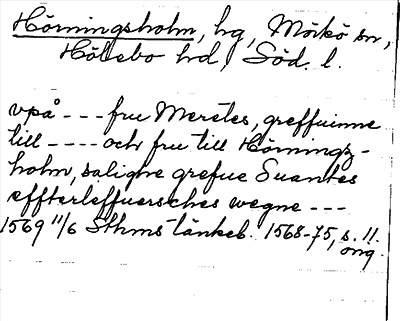 Hörningsholm, hg, Mörkö sn,
Hölebo hd, Söd. l.
vpå --- fru Meretes, greffuinne
till ---- och fru till Hörningz-
holm, salighe grefue Suantes
effterleffuersches wegne ---
1569 11/6 Sthms tänkeb. 1568-75, s. 11.
orig.